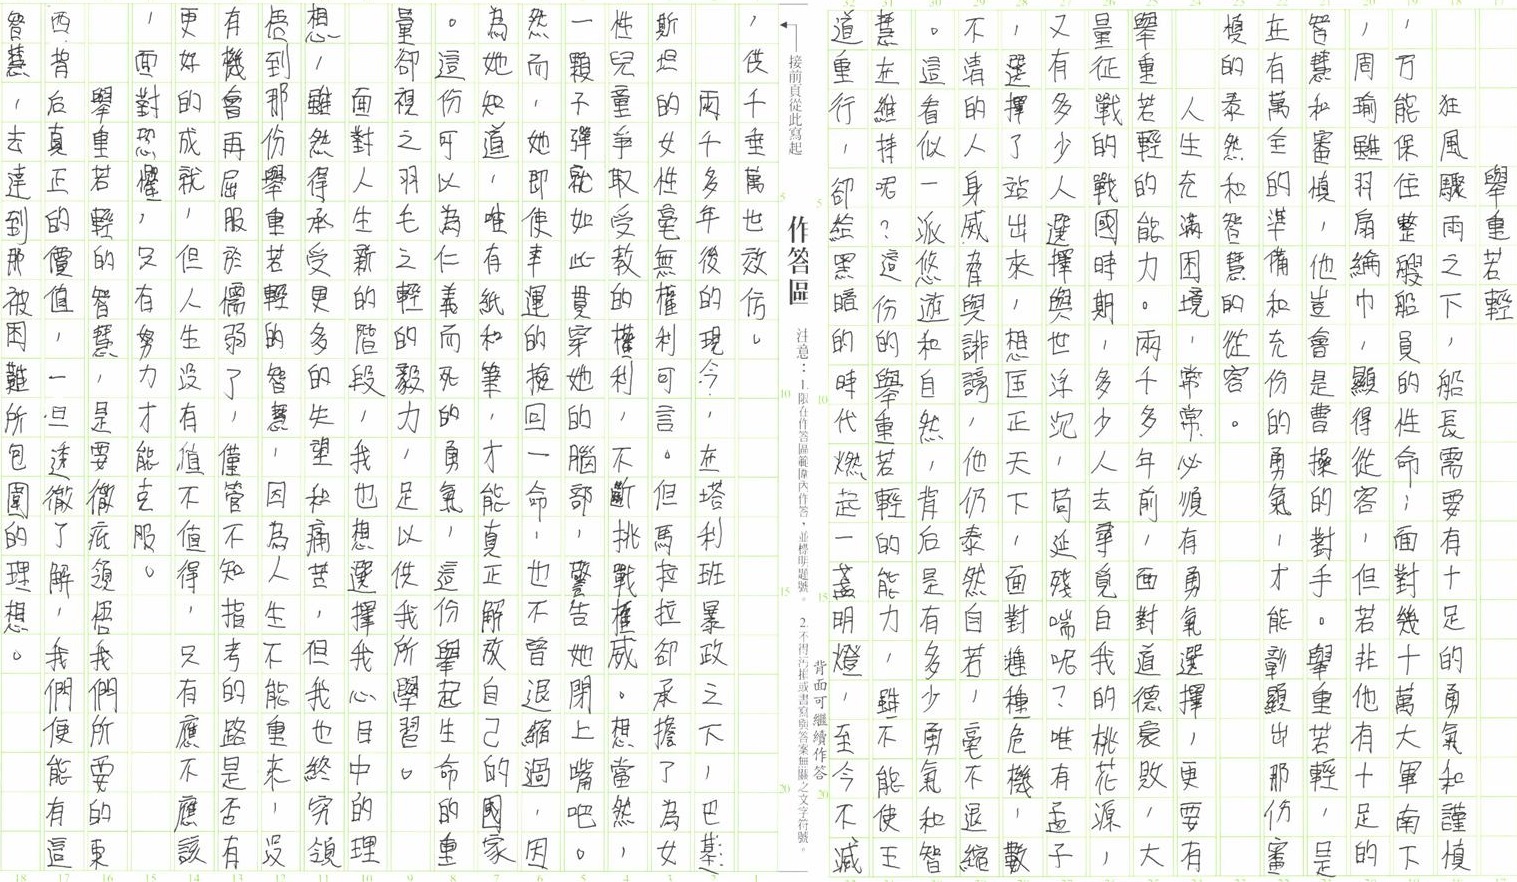 舉重若輕
狂風驟雨之下，船長需要有十足的勇氣和謹慎
，方能保住整艘船員的性命；面對幾十萬大軍南下
，周瑜雖羽扇綸巾，顯得從容，但若非他有十足的
智慧和審慎，他豈會是曹操的對手。舉重若輕，是
在有萬全的準備和充份的勇氣，才能彰顯出那份審
慎的泰然和智慧的從容。
人生充滿困境，常常必須有勇氣選擇，更要有
舉重若輕的能力。兩千多年前，面對道德衰敗，大
量征戰的戰國時期，多少人去尋覓自我的桃花源，
又有多少人選擇與世浮沉，苟延殘喘呢？唯有孟子
，選擇了站出來，想匡正天下，面對種種危機，數
不清的人身威脅與誹謗，他仍泰然自若，毫不退縮
。這看似一派悠遊和自然，背后是有多少勇氣和智
慧在維持呢？這份的舉重若輕的能力，雖不能使王
道重行，卻給黑暗的時代燃起一盞明燈，至今不滅
接前頁從此寫起
作答區
注意：1.限在作答區範圍內作答，並標明題號。
背面可繼續作答
，供千垂萬世效仿。
兩千多年後的現今，在塔利班暴政之下，巴基
斯坦的女性毫無權利可言。但馬拉拉卻承擔了為女
性兒童爭取受教的權利，不斷挑戰權威。想當然，
一顆子彈就如此貫穿她的腦部，警告她閉上嘴吧。
然而，她即使幸運的撿回一命，也不曾退縮過，因
為她知道，唯有紙和筆，才能真正解放自己的國家
。這份可以為仁義而死的勇氣，這份舉起生命的重
量卻視之羽毛之輕的毅力，足以供我所學習。
面對人生新的階段，我也想選擇我心目中的理
想，雖然得承受更多的失望和痛苦，但我也終究領
悟到那份舉重若輕的智慧，因為人生不能重來，沒
有機會再屈服於懦弱了，僅管不知指考的路是否有
更好的成就，但人生沒有值不值得，只有應不應該
，面對恐懼，只有努力才能克服。
舉重若輕的智慧，是要徹底領悟我們所要的東
西背后真正的價值，一旦透徹了解，我們便能有這
智慧，去達到那被困難所包圍的理想。